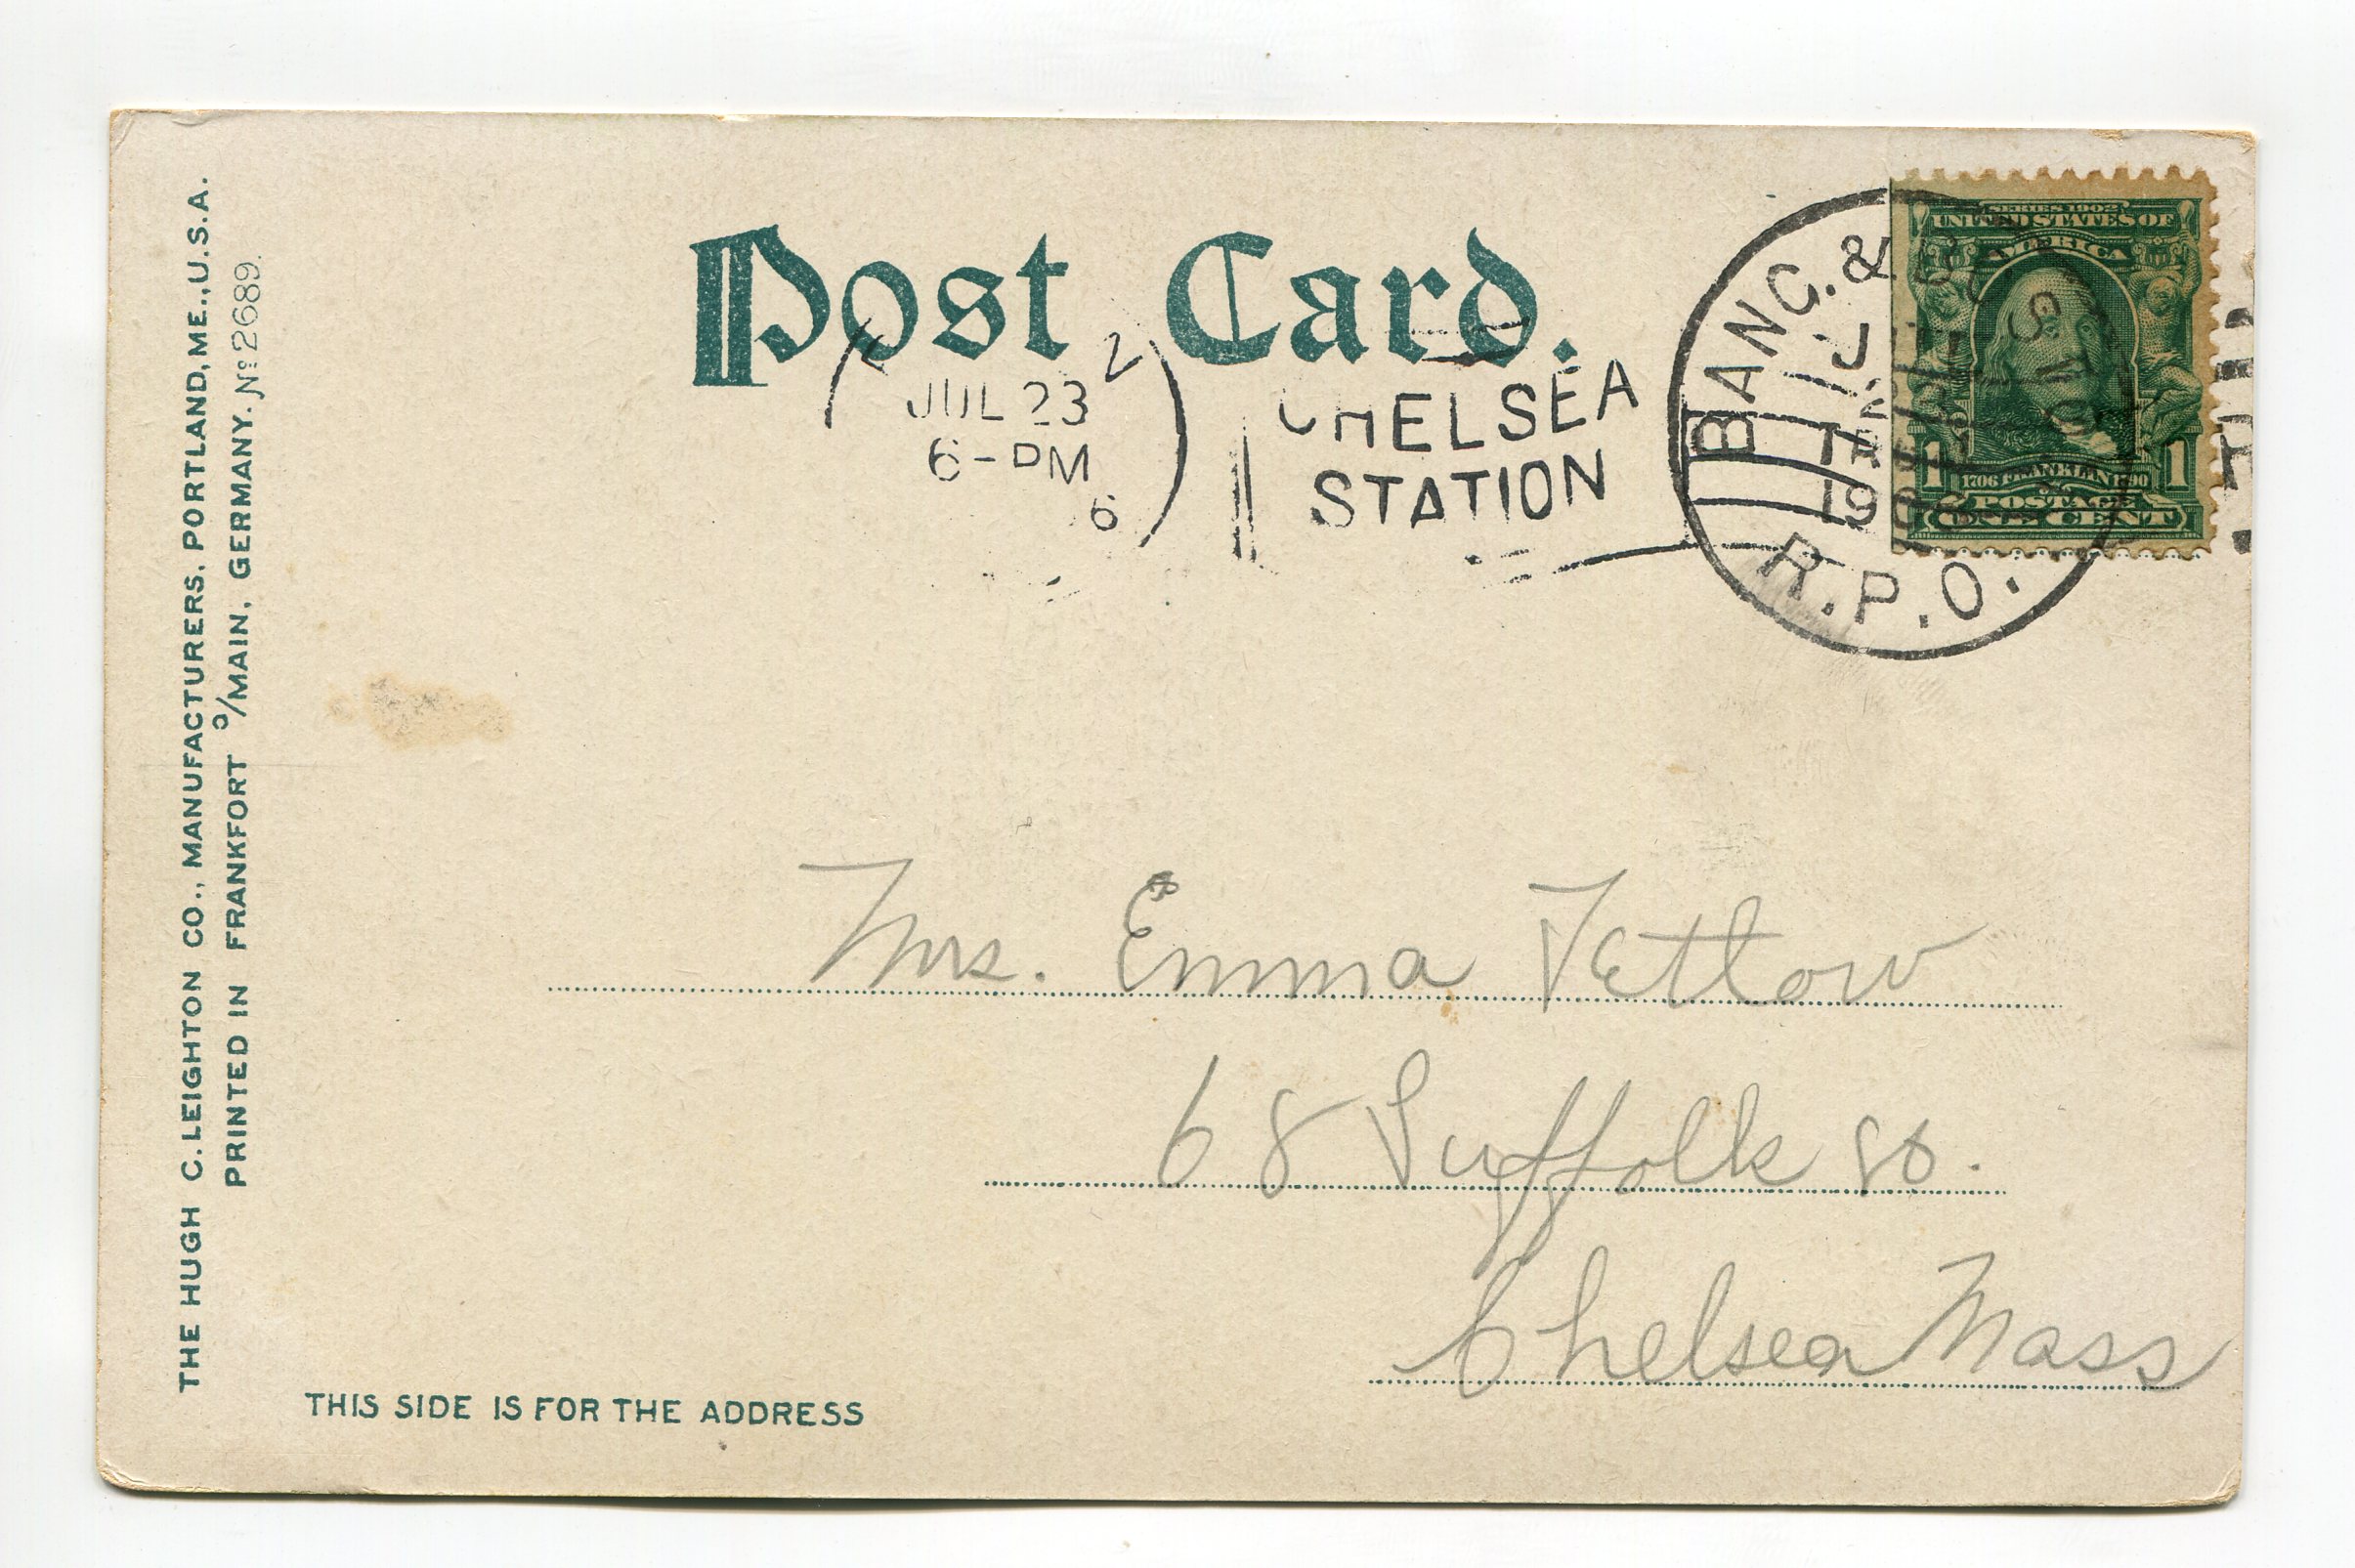 THE HUGH C. LEIGHTON CO., MANUFACTURERS, PORTLAND, ME., U.S.A.
PRINTED IN FRANKFORT º/MAIN, GERMANY. Nº 2689.
Post Card.
JUL 23
6-PM
6
CHELSEA
STATION
BANG. & BOSTON
R.P.O.
SERIES 1902
UNITED STATES OF
AMERICA
1706 FRANKLIN 1790
1 1
POSTAGE
ONE CENT
Mrs. Emma Tetlow
68 Suffolk St.
Chelsea Mass
THIS SIDE IS FOR THE ADDRESS